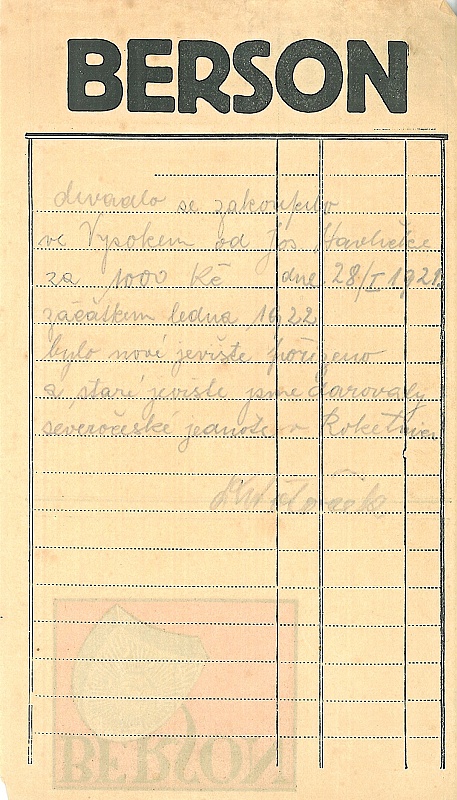 BERSON
divadlo se zakoupilo
ve Vysokem od Jos Havlíčka
za 1000 Kč dne 28/I 1921.
začátkem ledna 1922
bylo nové jeviště pořízeno
a staré jeviště jsme darovaly
severočeské jednotě v Roketnici
BERSON